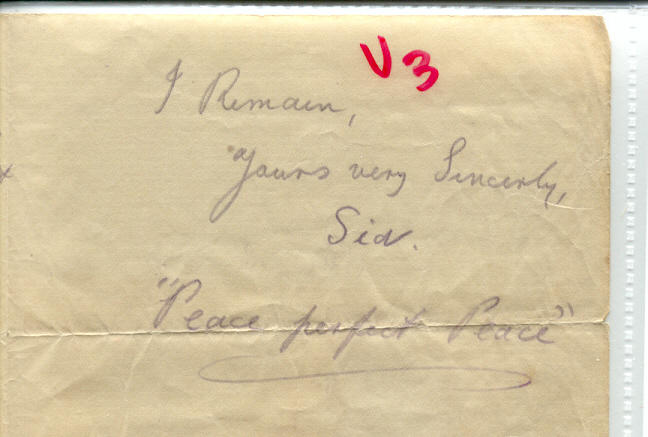 V3
I Remain,
Yours very Sincerly,
Sid.
"Peace perfect Peace"